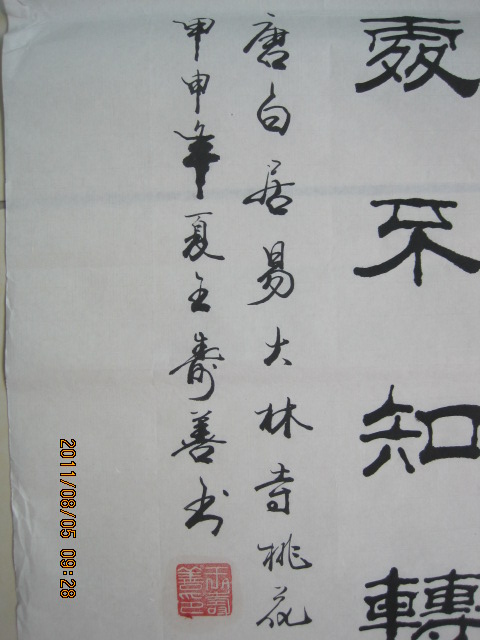 處不知轉
唐白居易大林寺桃花
甲申年夏王寿善书
王壽善印
2011/08/05 09:28